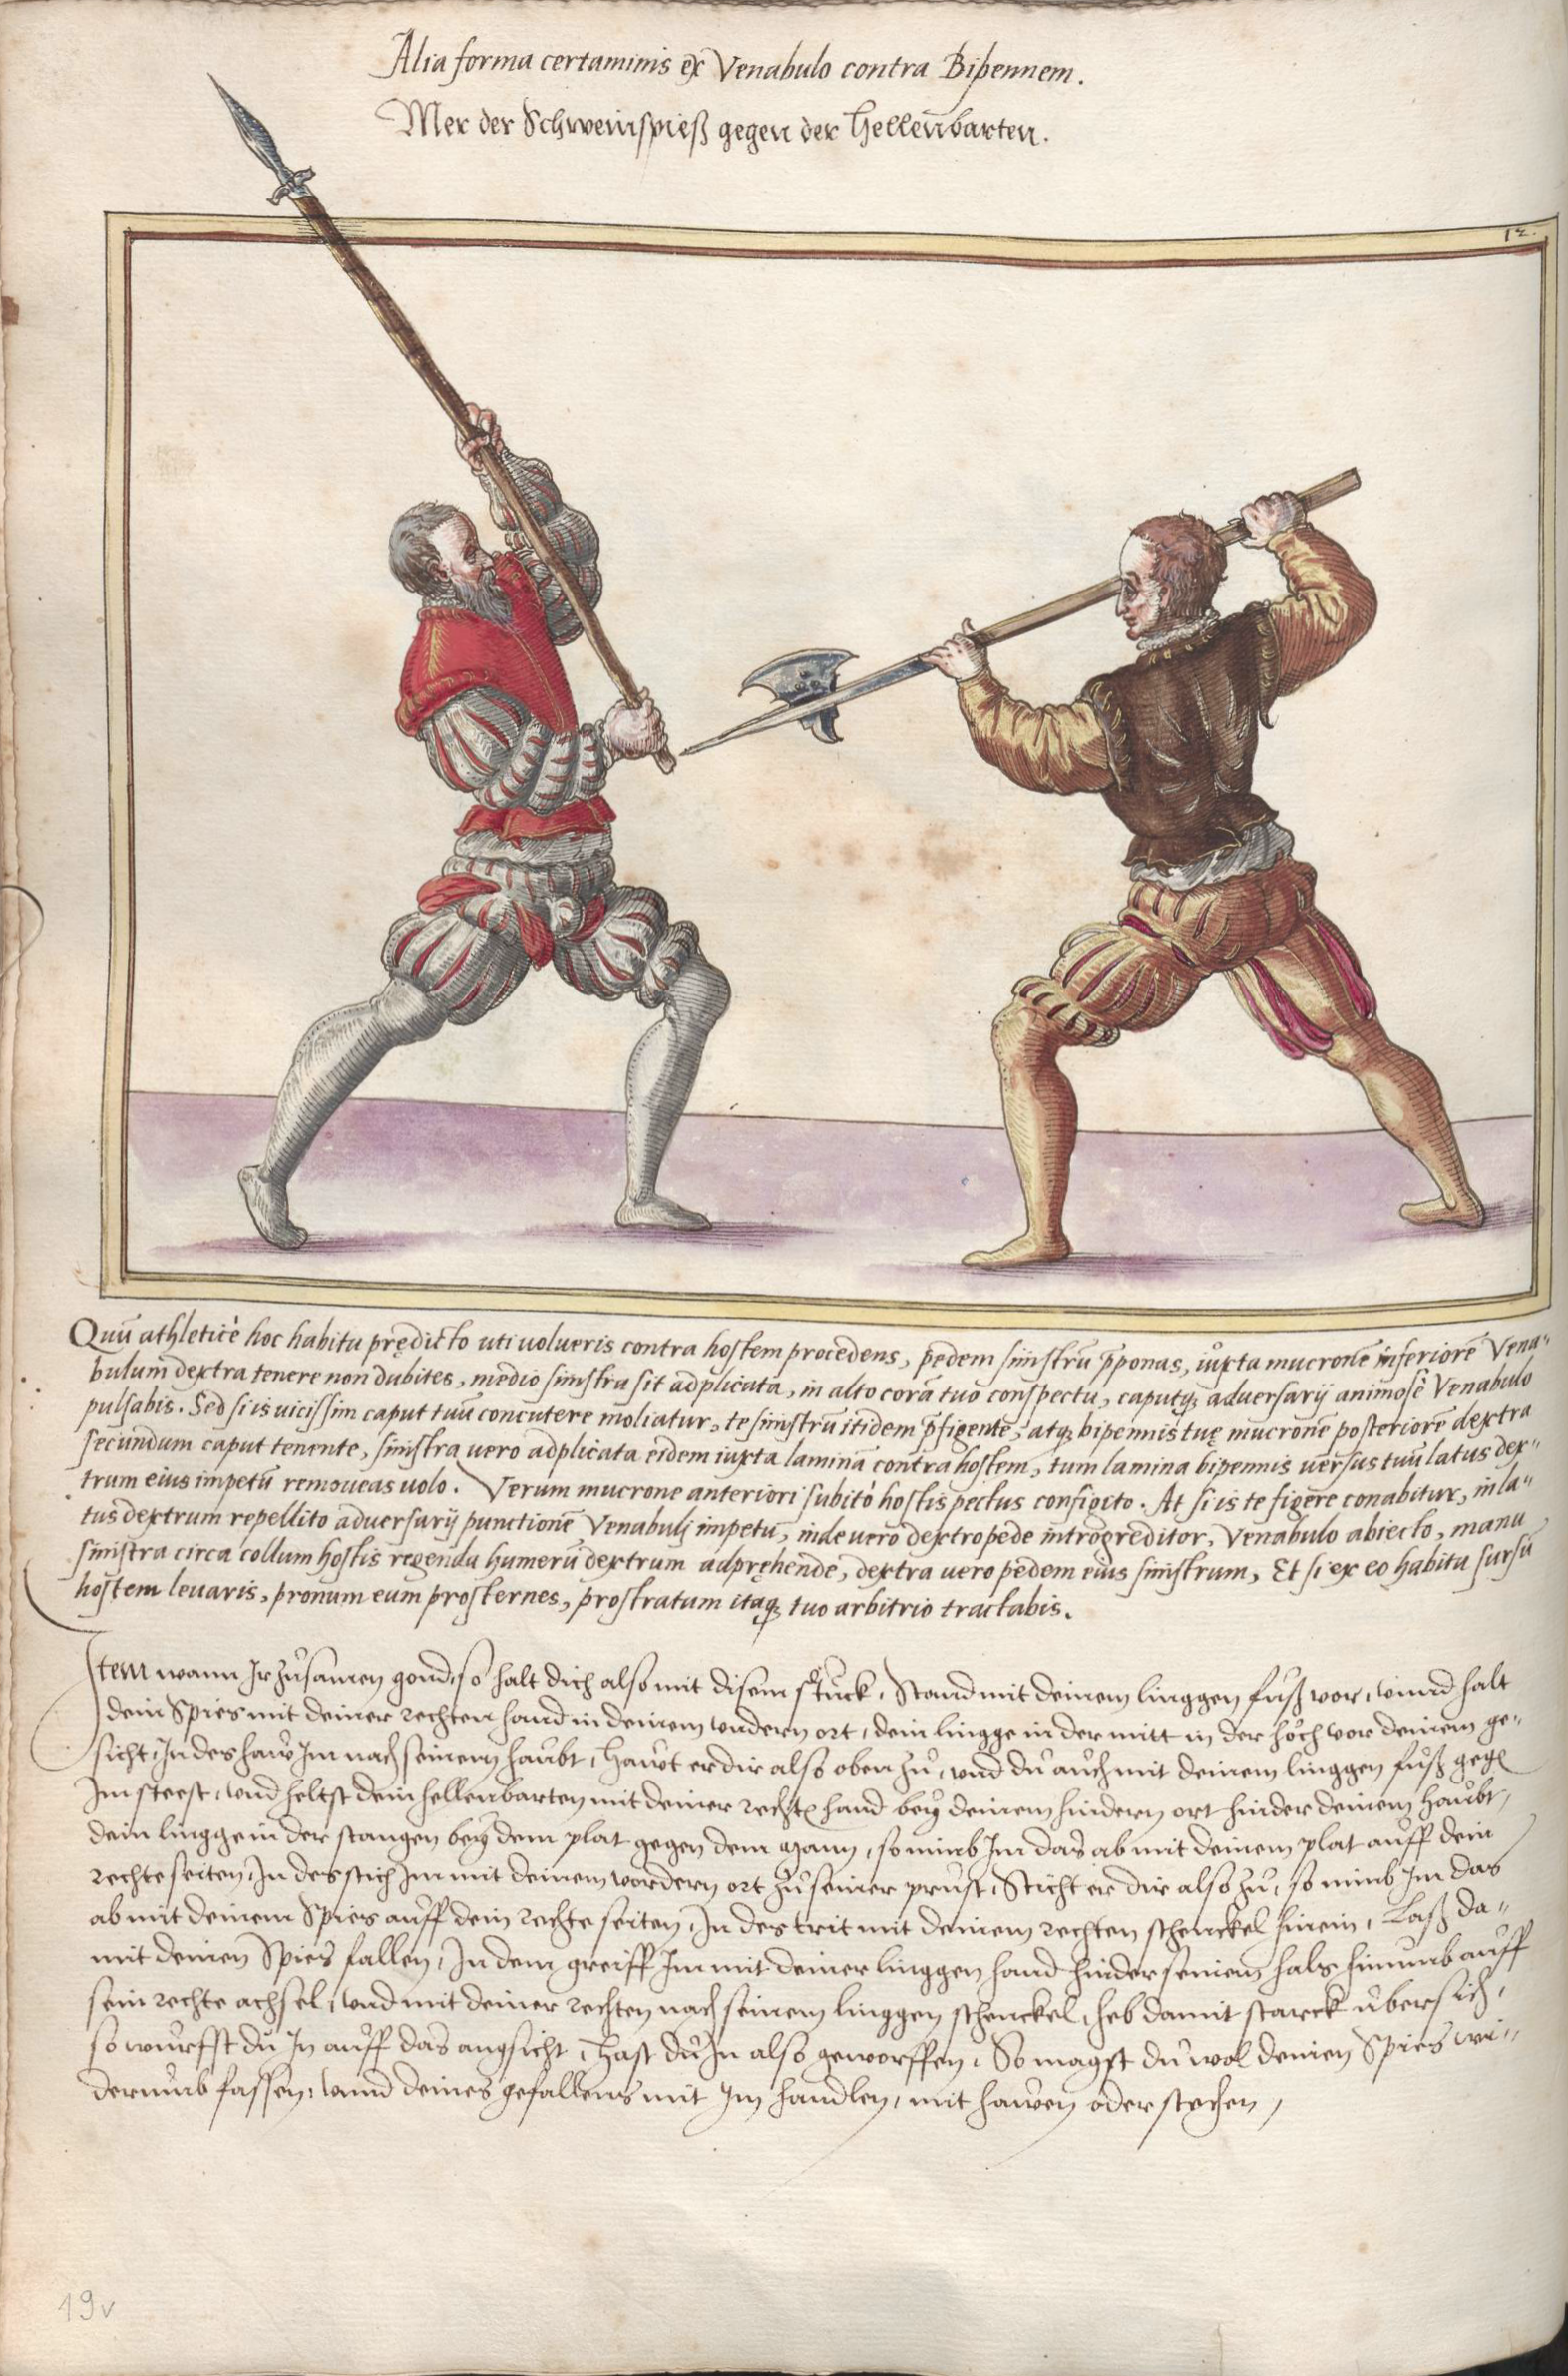 Alia forma certaminis ex Venabulo contra Bipennem.
Mer der Schweinspieß gegen der Hellenbarten.
12.
Quū athleticè hoc habitu prędicto uti uolueris contra hostem procedens, pedem sinistrū p̄ponas, iuxta mucronē inferiorē Vena-
bulum dextra tenere non dubites, medio sinistra sit adplicata, in alto corā tuo conspectu, caputq; aduersarij animosè Venabulo
pulsabis. Sed si is uicissim caput tuū concutere moliatur, te sinistrū itidem p̄figente, atq; bipennis tuę mucronē posteriorē dextra
secundum caput tenente, sinistra uero adplicata eidem iuxta laminā contra hostem, tum lamina bipennis uersus tuū latus dex-
trum eius impetū remoueas uolo. Verum mucrone anteriori subitò hostis pectus configito. At si is te figere conabitur, in la-
tus dextrum repellito aduersarij punctionē Venabulj impetu, inde uero dextro pede introgreditor, Venabulo abiecto, manu
sinistra circa collum hostis regenda humerū dextrum adpręhende, dextra uero pedem eius sinistrum, Et si ex eo habitu sursū
hostem leuaris, pronum eum prosternes, prostratum itaq; tuo arbitrio tractabis.
Item wann Ir zůsamen gond, so halt dich also mit disem stuck, Stand mit deinem linggen fůß vor, vnnd halt
dein Spies mit deiner rechten hand in deinem vndern ort, dein lingge in der mitt in der hôch vor deinem ge-
sicht, In des haw Im nach seinem haubt, hawt er dir also oben zů, und du auch mit deinem linggen fůß gegē
Im steest, und heltst dein hellenbarten mit deiner rechtē hand bey deinem hindern ort hinder deinem haubt,
dein lingge in der stangen bey dem plat gegen dem Mann, so nimb Im das ab mit deinem plat auff dein
rechte seiten, In des stich Im mit deinem vordern ort zů seiner prust, Sticht er dir also zů, so nimb Im das
ab mit deinem Spies auff dein rechte seiten, In des trit mit deinem rechten schenckel hinein, Laß da-
mit deinen Spies fallen, In dem greiff Im mit deiner linggen hand hinder seinem hals hinumb auff
sein rechte achsel, und mit deiner rechten nach seinem linggen schenckel, heb damit starck ubersich,
so wurffst du In auff das angsicht, hast du In also geworffen, So magst du wol deinen Spies wi-
derumb fassen, vnnd deines gefallens mit Im handlen, mit hawen oder stechen,
19v